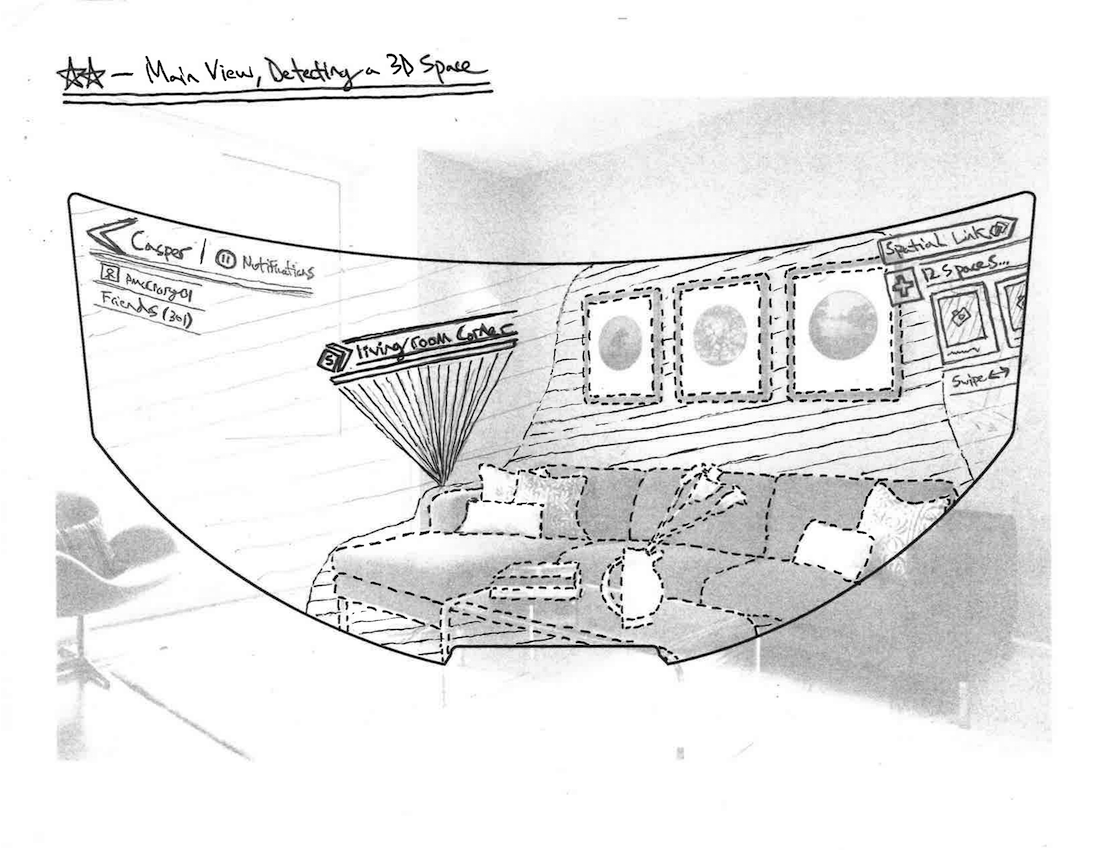 — Main View, Detecting a 3D Space
Casper | Notifications
Friends (301)
S living room Corner
Spatial Link
12 Spaces...
Swipe